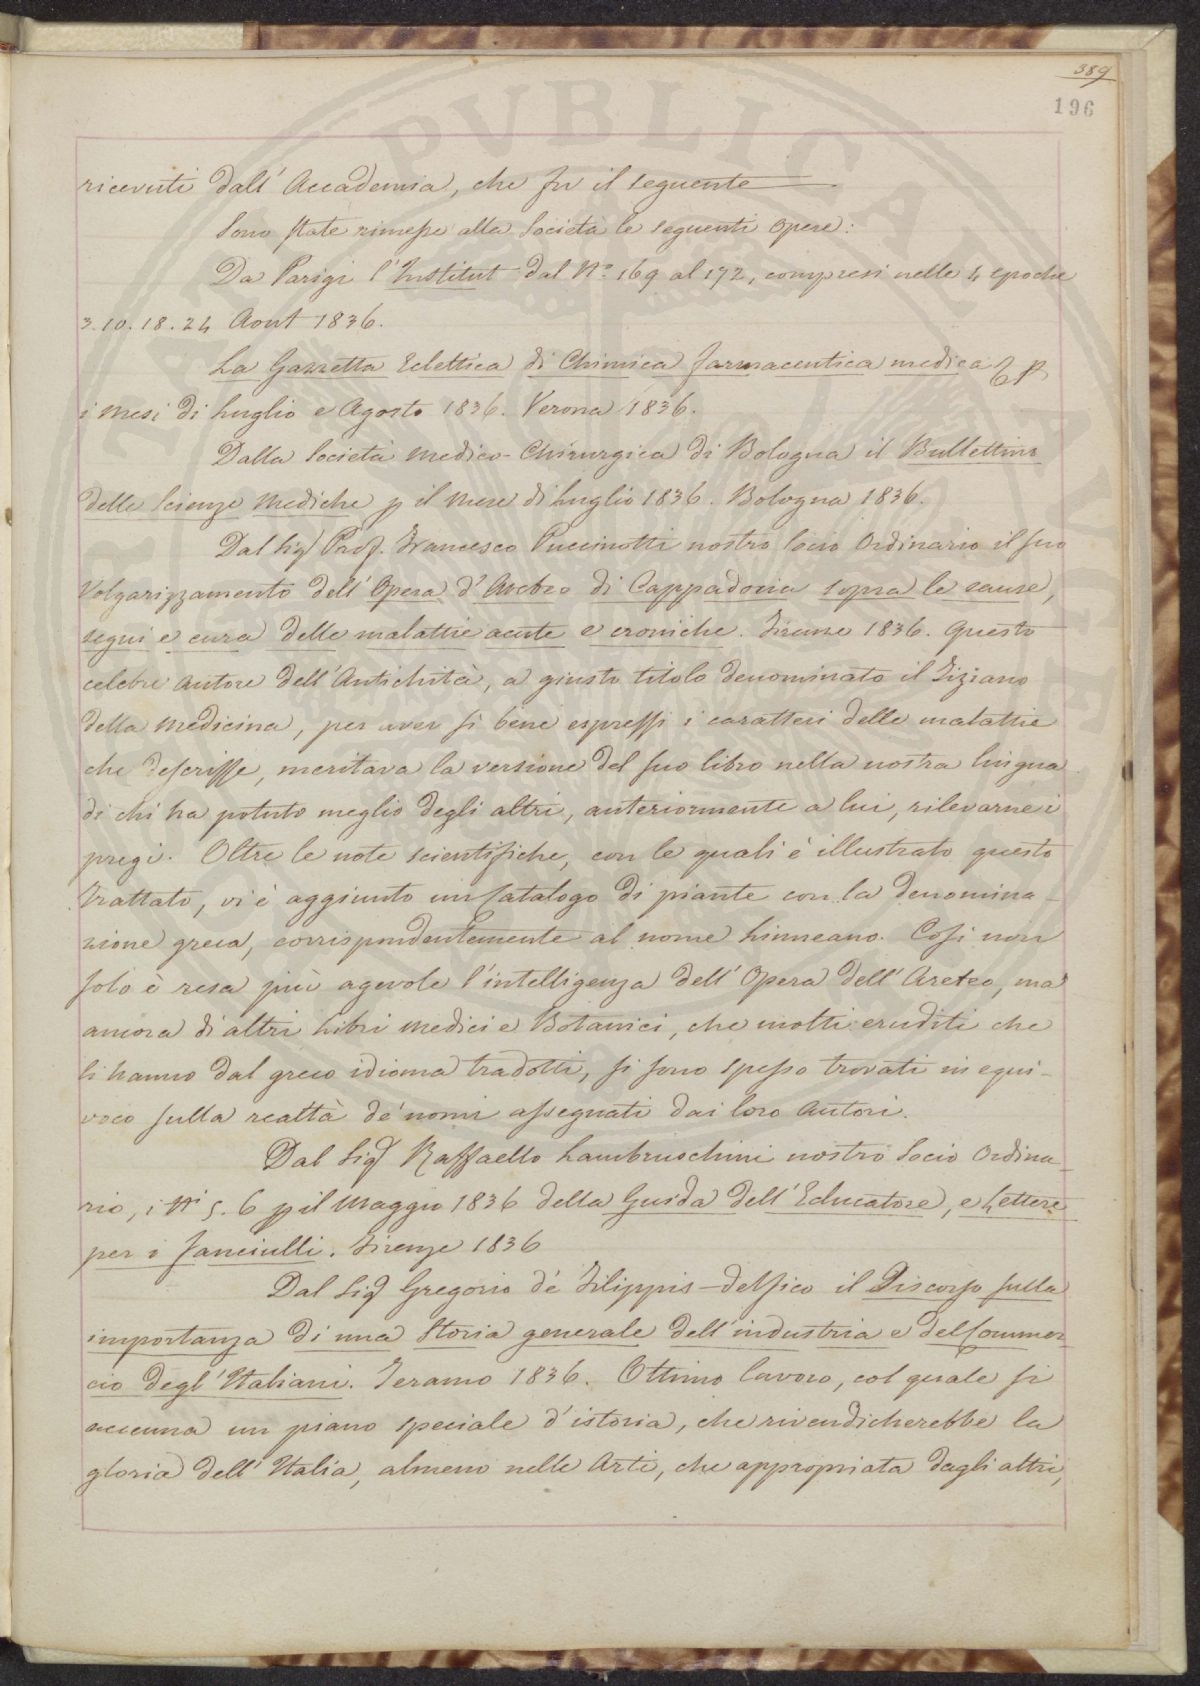 389
196
ricevuti dall' Accademia, che fu il seguente
Sono state rimesse alla Società le seguenti Opere:
Da Parigi l'Institut dal N.o 169 al 172, compresi nelle 4 epoche
3. 10. 18. 24 Aout 1836.
La Gazzetta Eclettica di Chimica farmaceutica medica &
i mesi di Luglio e Agosto 1836. Verona 1836.
Dalla Società Medico-Chirurgica di Bologna il Bullettino
delle Scienze Mediche p il Mese di Luglio 1836. Bologna 1836.
Dal Sigr Prof. Francesco Puccinotti nostro Socio Ordinario il suo
Volgarizzamento dell' Opera d' Areteo di Cappadocia sopra le cause,
segni e cura delle malattie acute e croniche. Firenze 1836. Questo
celebre Autore dell' Antichità, a giusto titolo denominato il Tiziano
della Medicina, per aver si bene espressi i caratteri delle malattie
che descrisse, meritava la versione del suo libro nella nostra lingua
di chi ha potuto meglio degli altri, anteriormente a lui, rilevarne i
pregi. Oltre le note scientifiche, con le quali è illustrato questo
Trattato, vi è aggiunto un Catalogo di piante con la denomina-
zione greca, corrispondentemente al nome Linneano. Così non
solo è resa più agevole l'intelligenza dell' Opera dell' Areteo, ma
ancora di altri Libri Medici e Botanici, che molti eruditi che
li hanno dal greco idioma tradotti, si sono spesso trovati in equi-
voco sulla realtà de' nomi assegnati dai loro Autori.
Dal Sigr Raffaello Lambruschini nostro Socio Ordina-
rio, i Ni 5. 6 p il Maggio 1836 della Guida dell' Educatore, e Lettere
per i fanciulli. Firenze 1836
Dal Sigr Gregorio de' Filippis-Delfico il Discorso sulla
importanza di una Storia generale dell' industria e del Commer-
cio degl' Italiani. Teramo 1836. Ottimo lavoro, col quale si
accenna un piano speciale d' istoria, che rivendicherebbe la
gloria dell' Italia, almeno nelle Arti, che appropriata dagli altri,